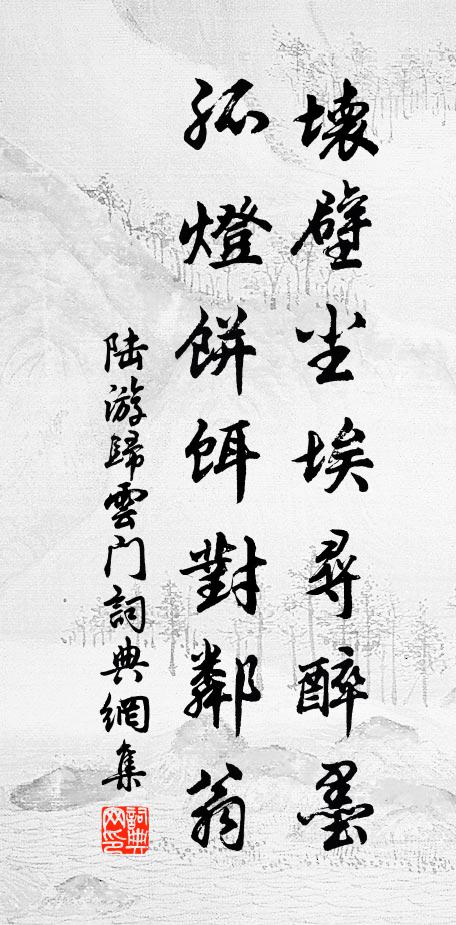 壞壁尘埃尋醉墨
孤燈餅餌對鄰翁
陆游歸雲门詞典網集
詞典网印